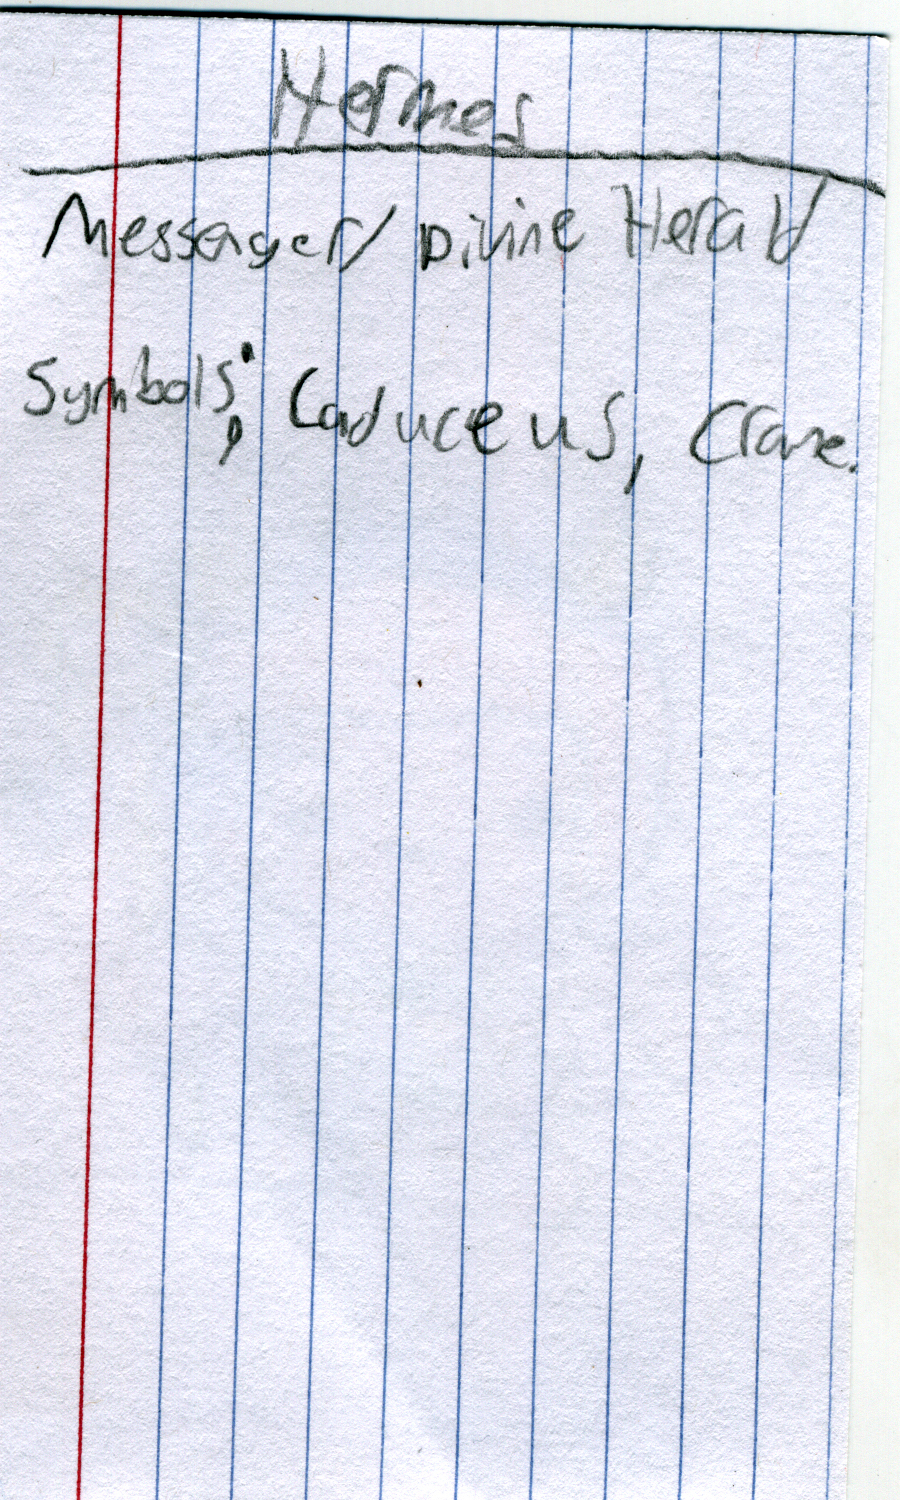 Hermes
Messenger/ Divine Herald
Symbols; Caduceus, Crane.